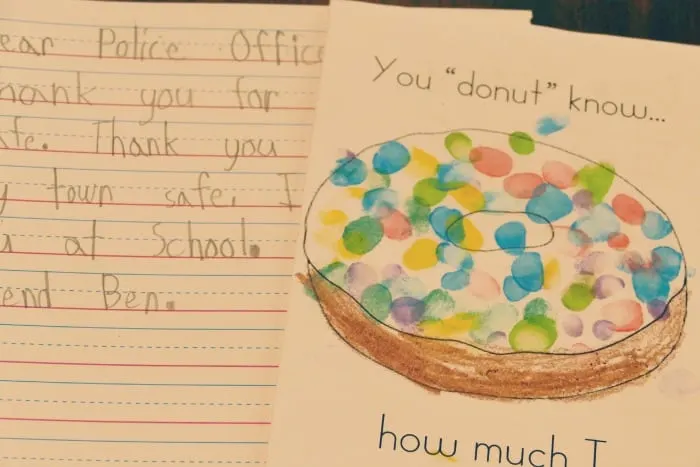 ear Police Offic
hank you for
fe. Thank you
y town safe. I
at School.
end Ben.
You “donut” know...
how much I